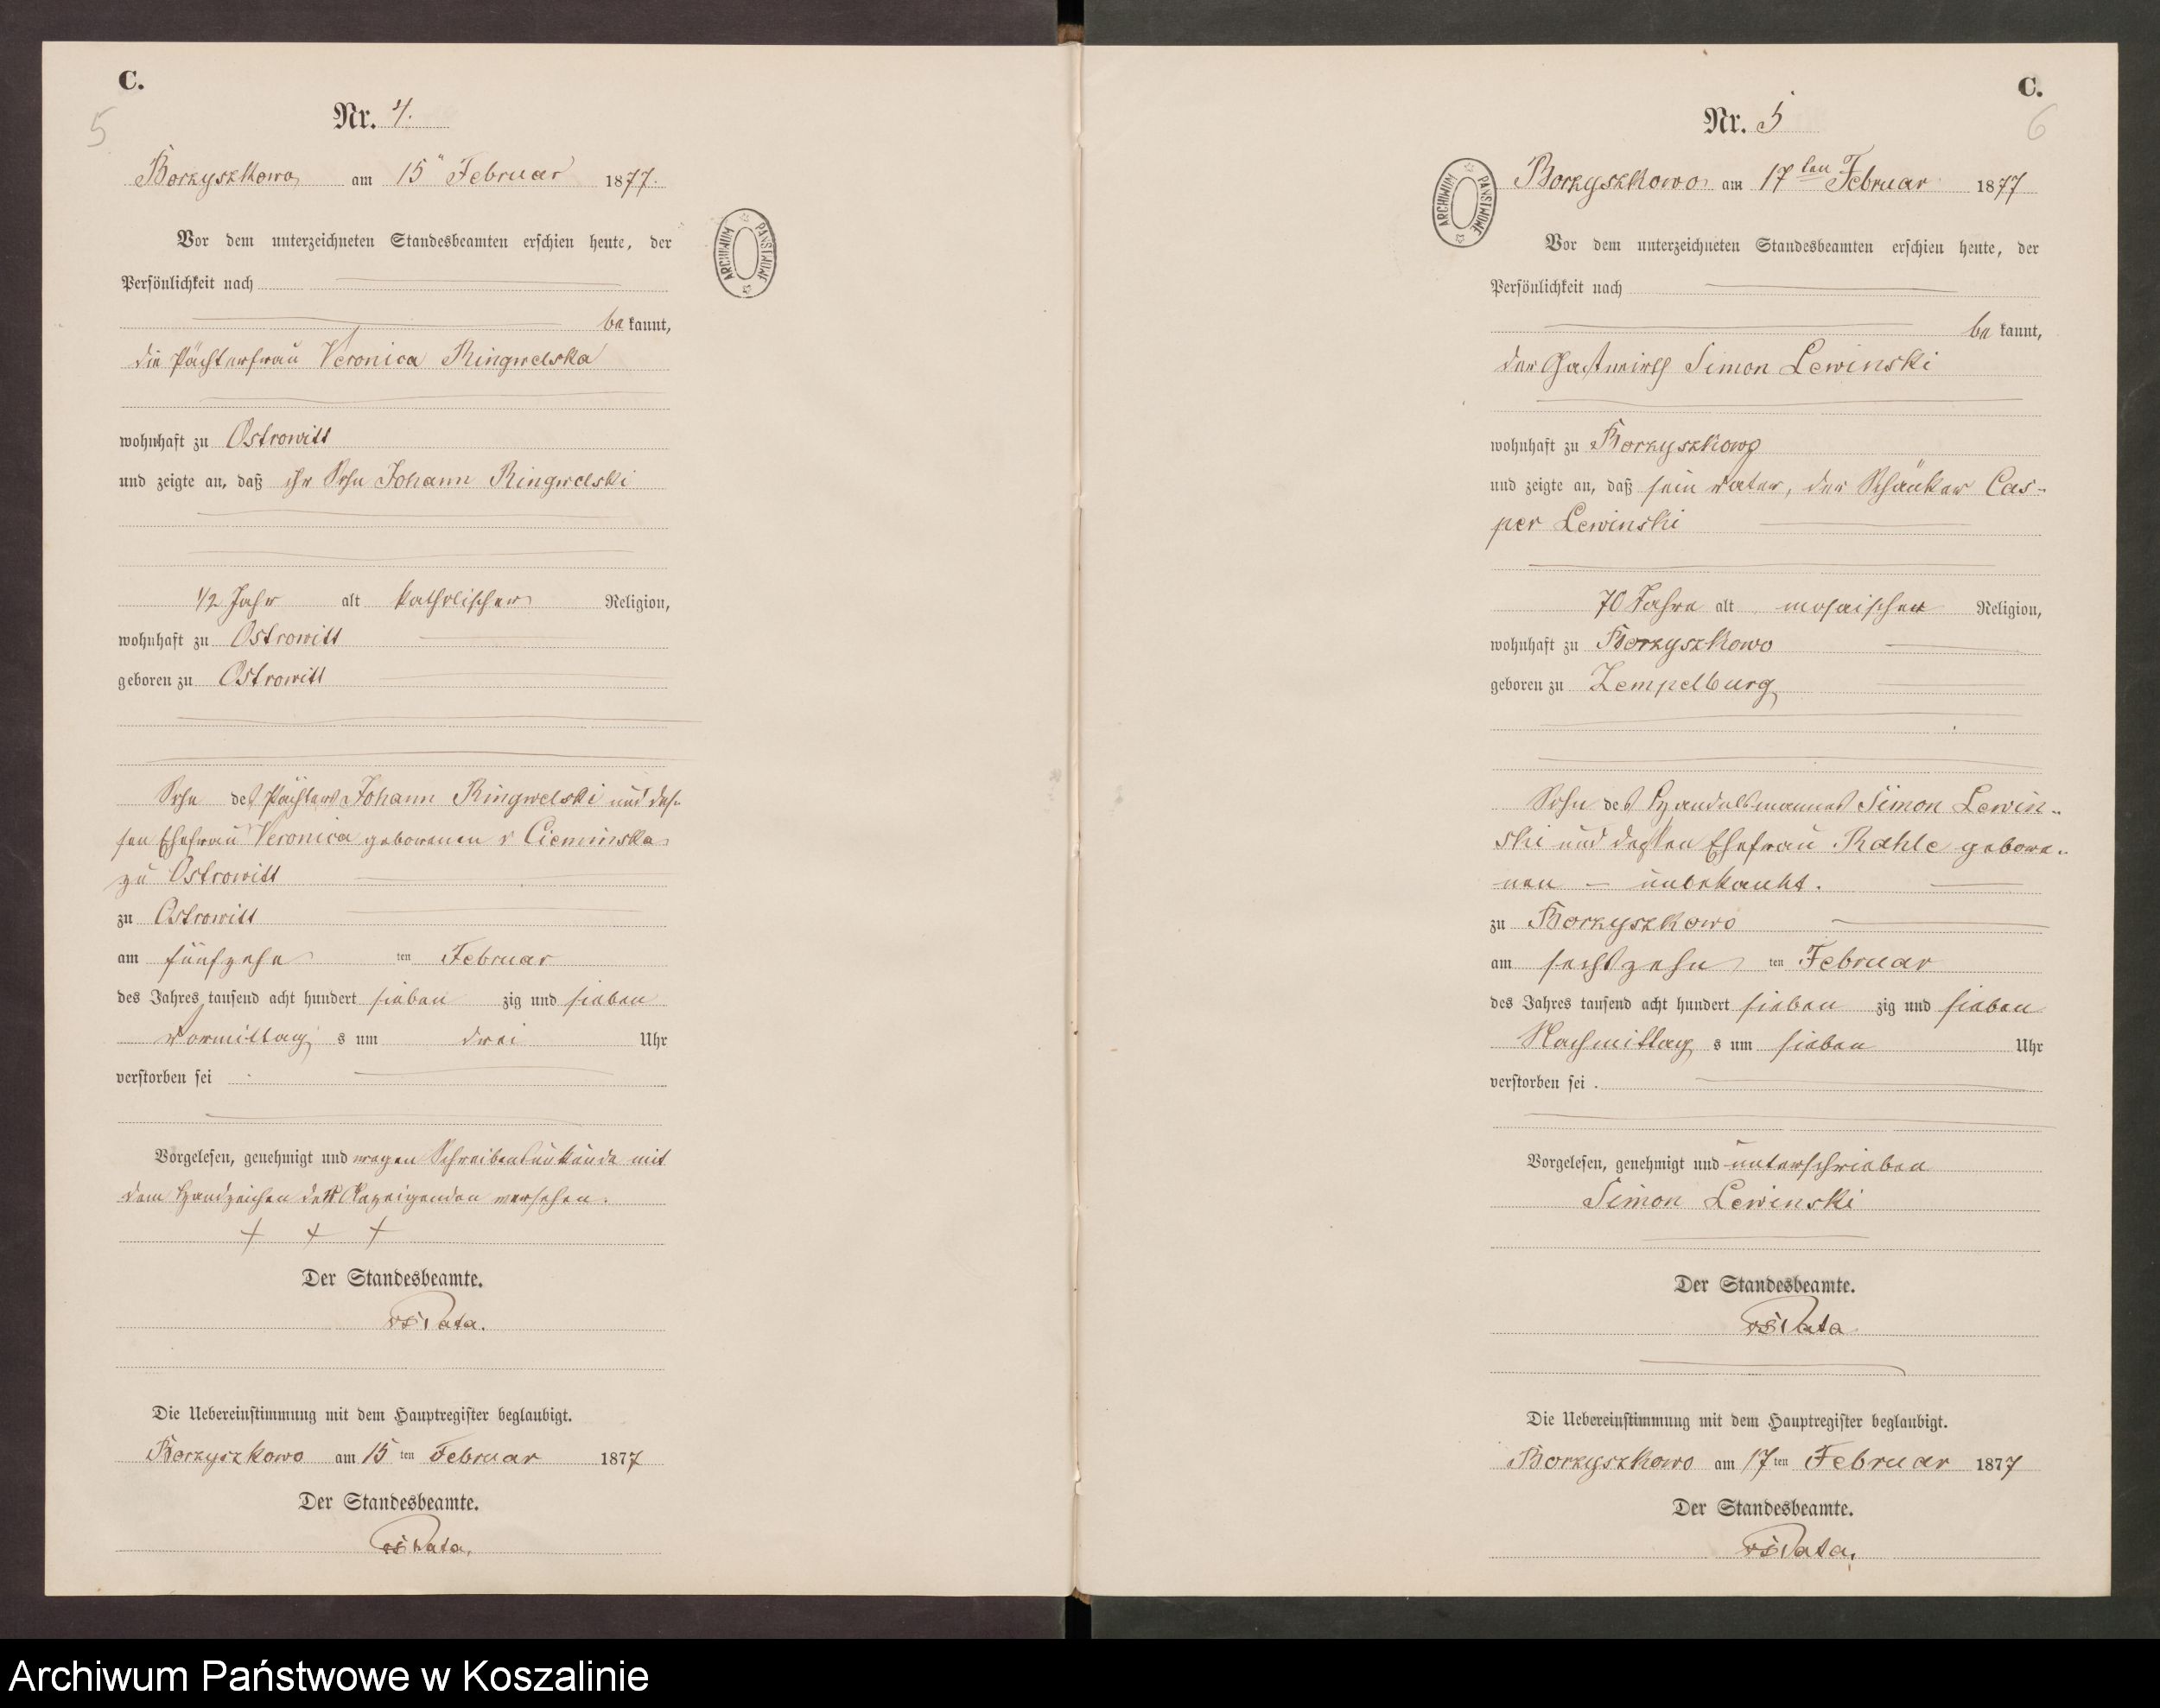 C.
5
Nr. 4.
Borzyszkowo am 15" Februar 1877.
Vor dem unterzeichneten Standesbeamten erschien heute, der
Persönlichkeit nach
be kannt,
die Pächterfrau Veronica Ringwelska
wohnhaft zu Ostrowitt
und zeigte an, daß ihr Sohn Johann Ringwelski
1/2 Jahr alt katholischer Religion,
wohnhaft zu Ostrowitt
geboren zu Ostrowitt
Sohn des Pächters Johann Ringwelski und des-
sen Ehefrau Veronica geborenen v Cieminska
zu Ostrowitt
zu Ostrowitt
am fünfzehn ten Februar
des Jahres tausend acht hundert sieben zig und sieben
Vormittag s um drei Uhr
verstorben sei
Vorgelesen, genehmigt und wegen Schreibensunkunde mit
dem Handzeichen der Anzeigenden versehen.
+ + +
Der Standesbeamte.
Pata.
Die Uebereinstimmung mit dem Hauptregister beglaubigt.
Borzyszkowo am 15 ten Februar 1877
Der Standesbeamte.
Pata.
ARCHIWUM PAŃSTWOWE
C.
6
Nr. 5
Borzyszkowo am 17 ten Februar 1877
Vor dem unterzeichneten Standesbeamten erschien heute, der
Persönlichkeit nach
be kannt,
der Gastwirth Simon Lewinski
wohnhaft zu Borzyszkowo
und zeigte an, daß sein Vater, der Schänker Cas-
per Lewinski
70 Jahre alt mosaischer Religion,
wohnhaft zu Borzyszkowo
geboren zu Zempelburg
Sohn des Handelsmannes Simon Lewin-
ski und dessen Ehefrau Rahle gebore-
nen – unbekannt.
zu Borzyszkowo
am sechszehn ten Februar
des Jahres tausend acht hundert sieben zig und sieben
Nachmittag s um sieben Uhr
verstorben sei
Vorgelesen, genehmigt und unterschrieben
Simon Lewinski
Der Standesbeamte.
Pata
Die Uebereinstimmung mit dem Hauptregister beglaubigt.
Borzyszkowo am 17 ten Februar 1877
Der Standesbeamte.
Pata.
ARCHIWUM PAŃSTWOWE
Archiwum Państwowe w Koszalinie